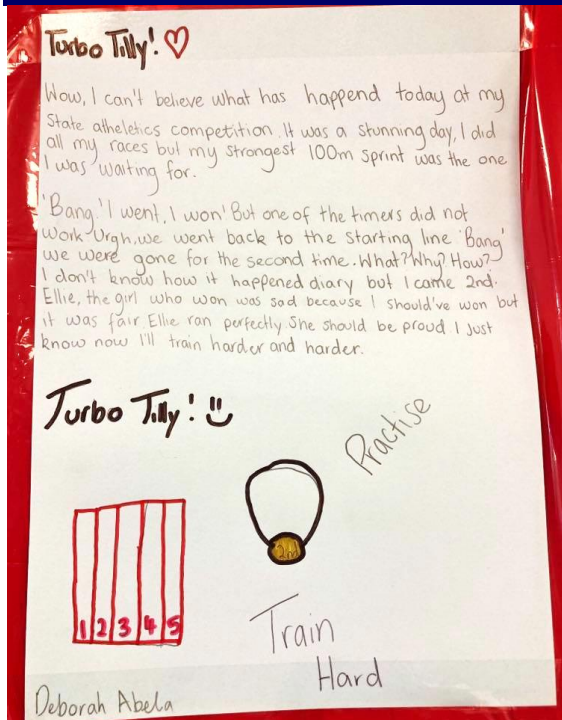 Turbo Tilly! ♡
Wow, I can't believe what has happend today at my
State atheletics competition. It was a stunning day, I did
all my races but my strongest 100m sprint was the one
I was waiting for.
'Bang.' I went, I won! But one of the timers did not
work. Urgh, we went back to the starting line 'Bang'
we were gone for the second time. What? Why? How?
I don't know how it happened diary but I came 2nd.
Ellie, the girl who won was sad because I should've won but
it was fair. Ellie ran perfectly She should be proud. I just
know now I'll train harder and harder.
Turbo Tilly! ü
Practise
2nd
1 2 3 4 5
Train
Hard
Deborah Abela